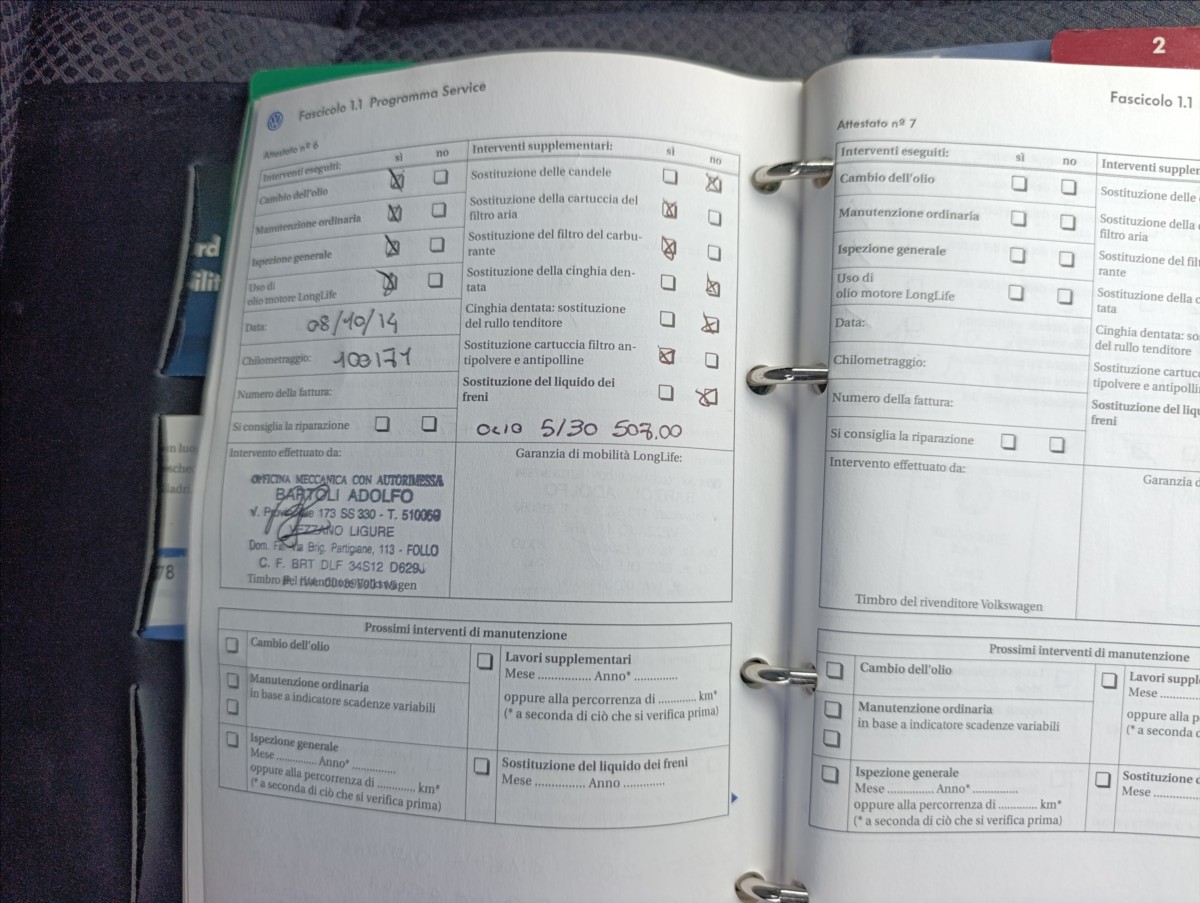 Fascicolo 1.1 Programma Service
Attestato nº 6
Interventi eseguiti:
sì
no
Cambio dell'olio
Manutenzione ordinaria
Ispezione generale
Uso di
olio motore LongLife
Data: 08/10/14
Chilometraggio: 103171
Numero della fattura:
Si consiglia la riparazione
Interventi supplementari:
sì
no
Sostituzione delle candele
Sostituzione della cartuccia del
filtro aria
Sostituzione del filtro del carbu-
rante
Sostituzione della cinghia den-
tata
Cinghia dentata: sostituzione
del rullo tenditore
Sostituzione cartuccia filtro an-
tipolvere e antipolline
Sostituzione del liquido dei
freni
OLIO 5/30 507.00
Intervento effettuato da:
OFFICINA MECCANICA CON AUTORIMESSA
BARTOLI ADOLFO
173 SS 330 - T. 510069
VEZZANO LIGURE
Brig. Partigiane, 113 - FOLLO
C. F. BRT DLF 34S12 D629J
Timbro del rivenditore Volkswagen
Garanzia di mobilità LongLife:
Prossimi interventi di manutenzione
Cambio dell'olio
Manutenzione ordinaria
in base a indicatore scadenze variabili
Ispezione generale
Mese ............. Anno* ..............
oppure alla percorrenza di ............ km*
(* a seconda di ciò che si verifica prima)
Lavori supplementari
Mese ................ Anno* .............
oppure alla percorrenza di ............ km*
(* a seconda di ciò che si verifica prima)
Sostituzione del liquido dei freni
Mese ............... Anno ............
2
Fascicolo 1.1
Attestato nº 7
Interventi eseguiti:
sì
no
Cambio dell'olio
Manutenzione ordinaria
Ispezione generale
Uso di
olio motore LongLife
Data:
Chilometraggio:
Numero della fattura:
Si consiglia la riparazione
Interventi supplemen
Sostituzione delle
Sostituzione della
filtro aria
Sostituzione del filt
rante
Sostituzione della c
tata
Cinghia dentata: so
del rullo tenditore
Sostituzione cartucc
tipolvere e antipolli
Sostituzione del liq
freni
Intervento effettuato da:
Garanzia d
Timbro del rivenditore Volkswagen
Prossimi interventi di manutenzione
Cambio dell'olio
Manutenzione ordinaria
in base a indicatore scadenze variabili
Ispezione generale
Mese ............... Anna* ...............
oppure alla percorrenza di ............. km*
(* a seconda di ciò che si verifica prima)
Lavori suppl
Mese
oppure alla p
(* a seconda d
Sostituzione d
Mese
rd
ilit
78